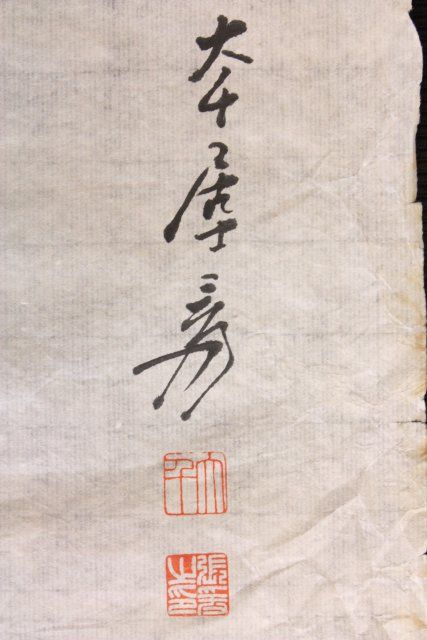 大千居士爰
大千
張爰之印